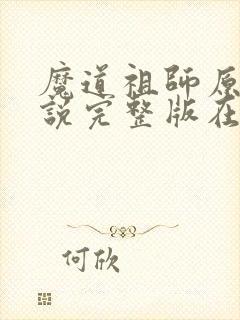 魔道祖師原
説完整版在
何欣